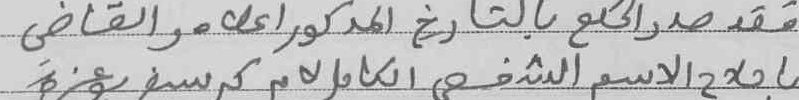 فقد صدر الحكم بالتاريخ المذكور اعلاه و القاضي
باصلاح الاسم الشخصي الكامل لام كم